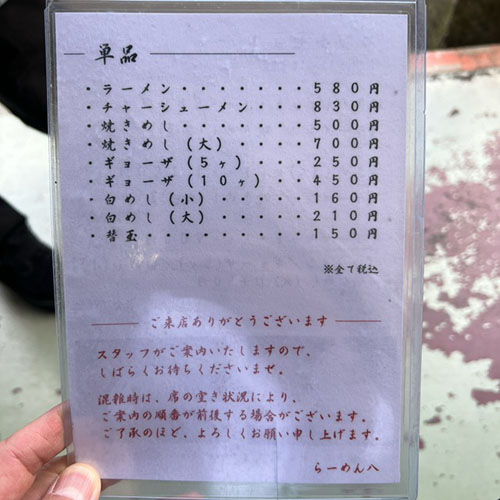 単品
・ラーメン・・・・・・・・580円
・チャーシューメン・・・・830円
・焼きめし・・・・・・・・500円
・焼きめし(大)・・・・・700円
・ギョーザ(5ヶ)・・・・250円
・ギョーザ(10ヶ)・・・450円
・白めし(小)・・・・・・160円
・白めし(大)・・・・・・210円
・替玉・・・・・・・・・・150円
※全て税込
ご来店ありがとうございます
スタッフがご案内いたしますので、
しばらくお待ちくださいませ。
混雑時は、席の空き状況により、
ご案内の順番が前後する場合がございます。
ご了承のほど、よろしくお願い申し上げます。
らーめん八